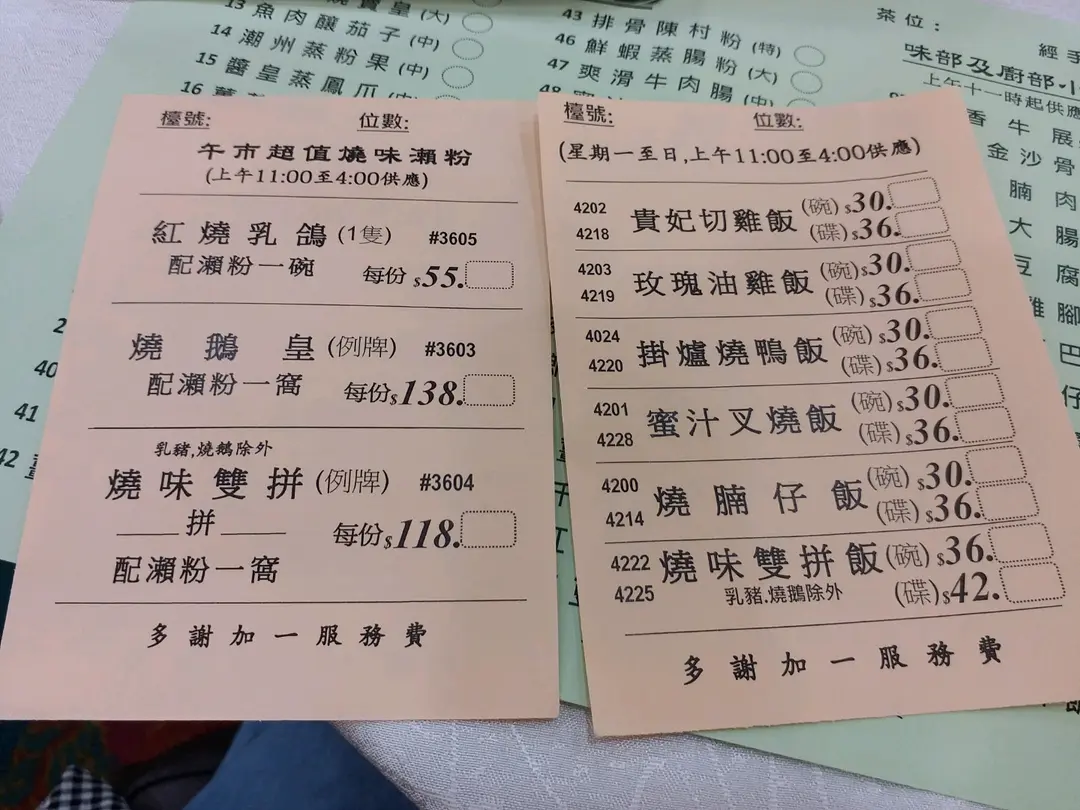 13 魚肉釀茄子(中)
14 潮州蒸粉果(中)
15 醬皇蒸鳳爪
16
43 排骨陳村粉(特)
46 鮮蝦蒸腸粉(大)
47 爽滑牛肉腸(中)
48
茶位:
經手
味部及廚部·小
上午十一時起供應
香牛展
金沙骨
腩肉
大腸
豆腐
腳
巴
仔
40
41
42
檯號: 位數:
午市超值燒味瀨粉
(上午11:00至4:00供應)
紅燒乳鴿(1隻) #3605
配瀨粉一碗 每份$55.
燒鵝皇(例牌) #3603
配瀨粉一窩 每份$138.
乳豬,燒鵝除外
燒味雙拼(例牌) #3604
拼
每份$118.
配瀨粉一窩
多謝加一服務費
檯號: 位數:
(星期一至日,上午11:00至4:00供應)
4202 貴妃切雞飯 (碗)$30.
4218 (碟)$36.
4203 玫瑰油雞飯 (碗)$30.
4219 (碟)$36.
4024 掛爐燒鴨飯 (碗)$30.
4220 (碟)$36.
4201 蜜汁叉燒飯 (碗)$30.
4228 (碟)$36.
4200 燒腩仔飯 (碗)$30.
4214 (碟)$36.
4222 燒味雙拼飯 (碗)$36.
4225 乳豬.燒鵝除外 (碟)$42.
多謝加一服務費